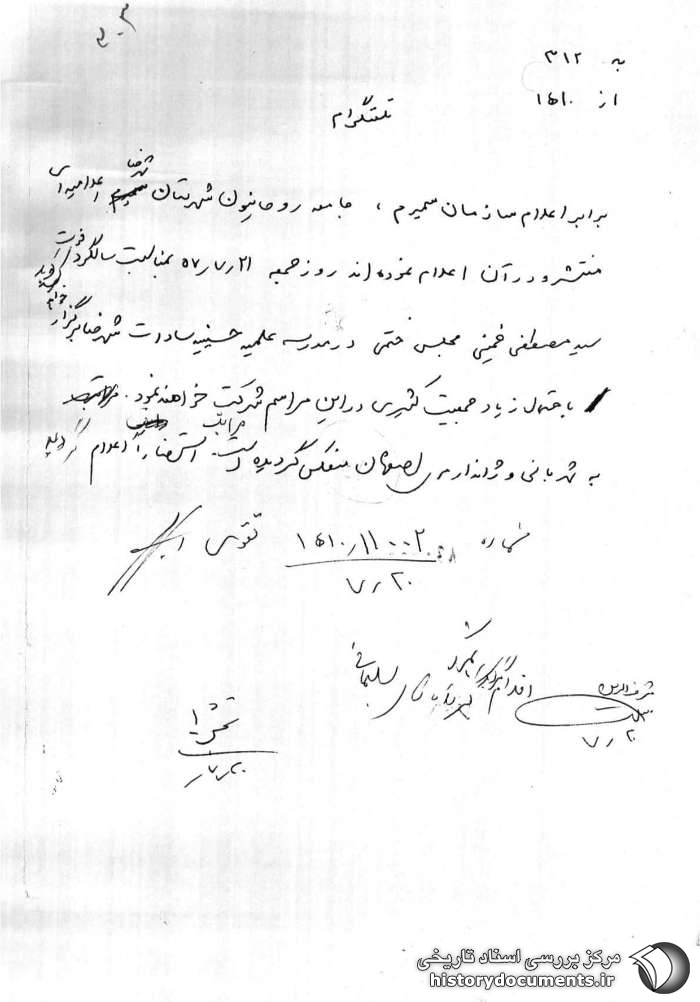 به ۳۱۲
از ۱۵۱۰
تلگرام
برابر اعلام سازمان سمیرم ، جامعه روحانیون شهرستان شهرضا اعلامیه‌ای
منتشر و در آن اعلام نموده‌اند روز جمعه ۵۷٫۷٫۲۱ بمناسبت سالگرد فوت
سید مصطفی خمینی مجلس ختمی در مدرسه علمیه حسینیه سادات شهرضا برگزار خواهد گردید
باحتمال زیاد جمعیت کثیری در این مراسم شرکت خواهند نمود. مراتب
به شهربانی و ژاندارمری اصفهان منعکس گردیده است. استحضاراً اعلام گردید
شماره ۱۵۱۰٫۱۱۰۰۲ تقوی
۷٫۲۰
اقدام
سلیمانی
۷٫۲۰
۷٫۲۰
مرکز بررسی اسناد تاریخی
historydocuments.ir